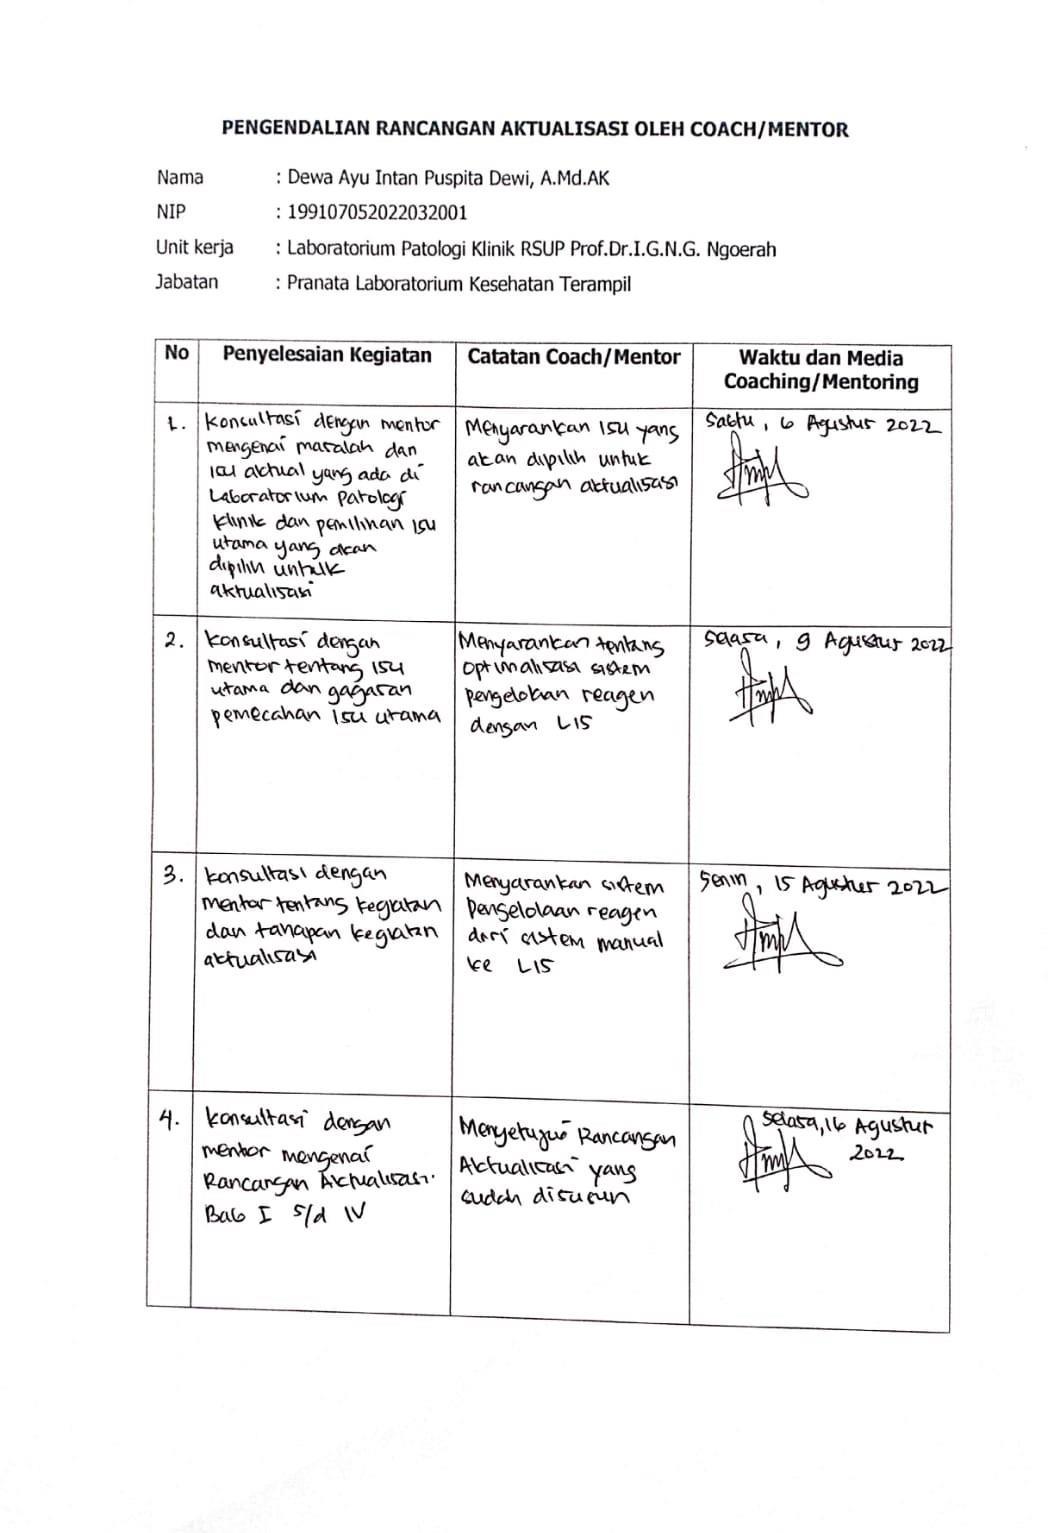 PENGENDALIAN RANCANGAN AKTUALISASI OLEH COACH/MENTOR
Nama : Dewa Ayu Intan Puspita Dewi, A.Md.AK
NIP : 199107052022032001
Unit kerja : Laboratorium Patologi Klinik RSUP Prof.Dr.I.G.N.G. Ngoerah
Jabatan : Pranata Laboratorium Kesehatan Terampil
No Penyelesaian Kegiatan Catatan Coach/Mentor Waktu dan Media
Coaching/Mentoring
1.
Konsultasi dengan mentor
mengenai masalah dan
isu aktual yang ada di
Laboratorium Patologi
Klinik dan pemilihan isu
utama yang akan
dipilih untuk
aktualisasi
Menyarankan isu yang
akan dipilih untuk
rancangan aktualisasi
Sabtu, 6 Agustus 2022
2.
Konsultasi dengan
mentor tentang isu
utama dan gagasan
pemecahan isu utama
Menyarankan tentang
optimalisasi sistem
pengelolaan reagen
dengan LIS
Selasa, 9 Agustus 2022
3.
Konsultasi dengan
mentor tentang kegiatan
dan tahapan kegiatan
aktualisasi
Menyarankan sistem
pengelolaan reagen
dari sistem manual
ke LIS
Senin, 15 Agustus 2022
4.
Konsultasi dengan
mentor mengenai
Rancangan Aktualisasi
Bab I s/d IV
Menyetujui Rancangan
Aktualisasi yang
sudah disusun
Selasa, 16 Agustus
2022